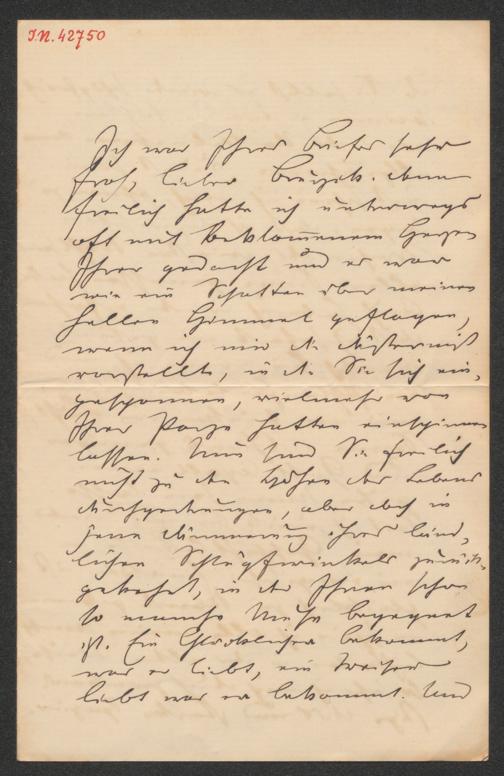 I.N. 42750
Ich war Ihres Briefes sehr
froh, lieber Denn
freilich hatte ich unterwegs
oft mit beklom̄enem Herzen
Ihrer gedacht und es war
wie ein Schatten über meinen
hellen Himmel geflogen,
wenn ich mir die Düsterniß
vorstellte, in die Sie sich ein-
gesponnen, vielmehr von
Ihrer Parze hatten einspinnen
lassen. Nun sind Sie freilich
nicht zu den Höhen des Lebens
durchgedrungen, aber doch in
jene Dämmerung Ihres länd-
lichen Schlupfwinkels zurück-
gekehrt, in der Ihnen schon
so manche Muse begegnet
ist. Ein Glücklicher bekommt,
was er liebt, ein Weiser
liebt was er bekommt. Und